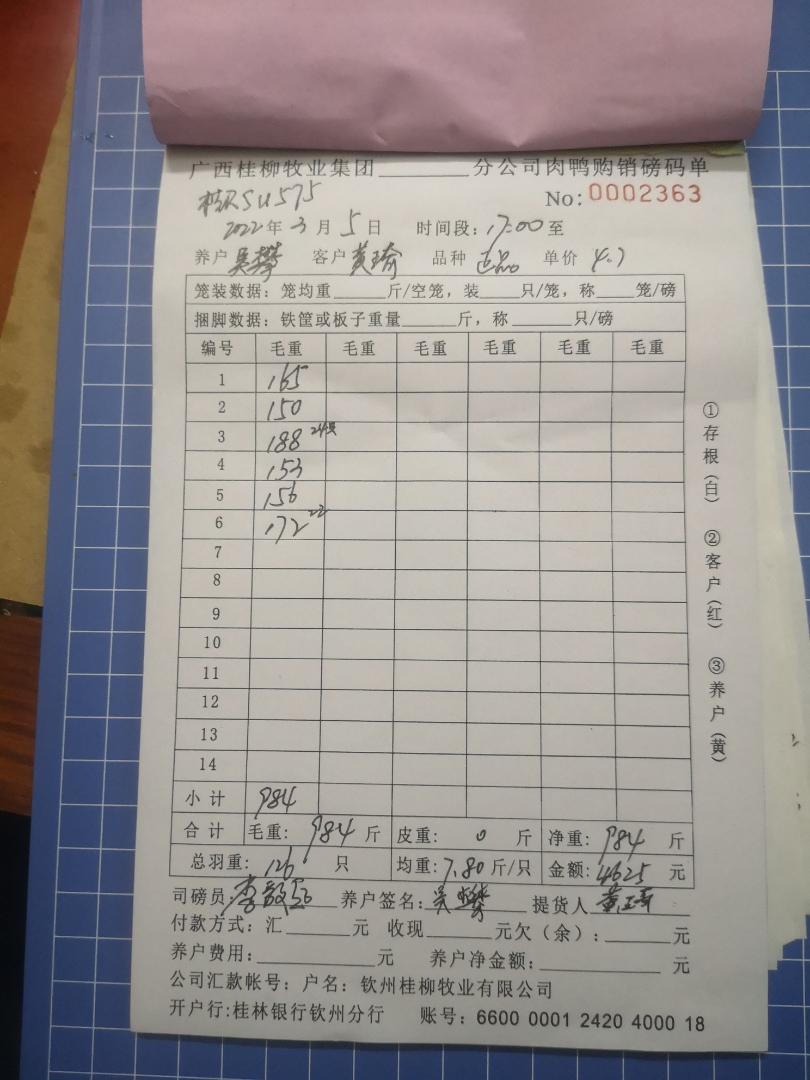 广西桂柳牧业集团________分公司肉鸭购销磅码单
SU575 No: 0002363
2022年3月5日 时间段: 17:00至
养户 吴攀 客户 黄瑜 品种 正品 单价 4.7
笼装数据: 笼均重_____斤/空笼, 装____只/笼, 称____笼/磅
捆脚数据: 铁筐或板子重量_____斤, 称_____只/磅
编号 毛重 毛重 毛重 毛重 毛重 毛重
1 165
2 150
3 188 24只
4 153
5 156
6 172 22
7
8
9
10
11
12
13
14
小计 984
合计 毛重: 984 斤 皮重: 0 斤 净重: 984 斤
总羽重: 126 只 均重: 7.80 斤/只 金额: 4625 元
司磅员: 李 养户签名: 吴攀 提货人
付款方式: 汇______元 收现______元欠(余): ______元
养户费用: __________元 养户净金额: __________元
公司汇款帐号: 户名: 钦州桂柳牧业有限公司
开户行:桂林银行钦州分行 账号: 6600 0001 2420 4000 18
①存根(白) ②客户(红) ③养户(黄)